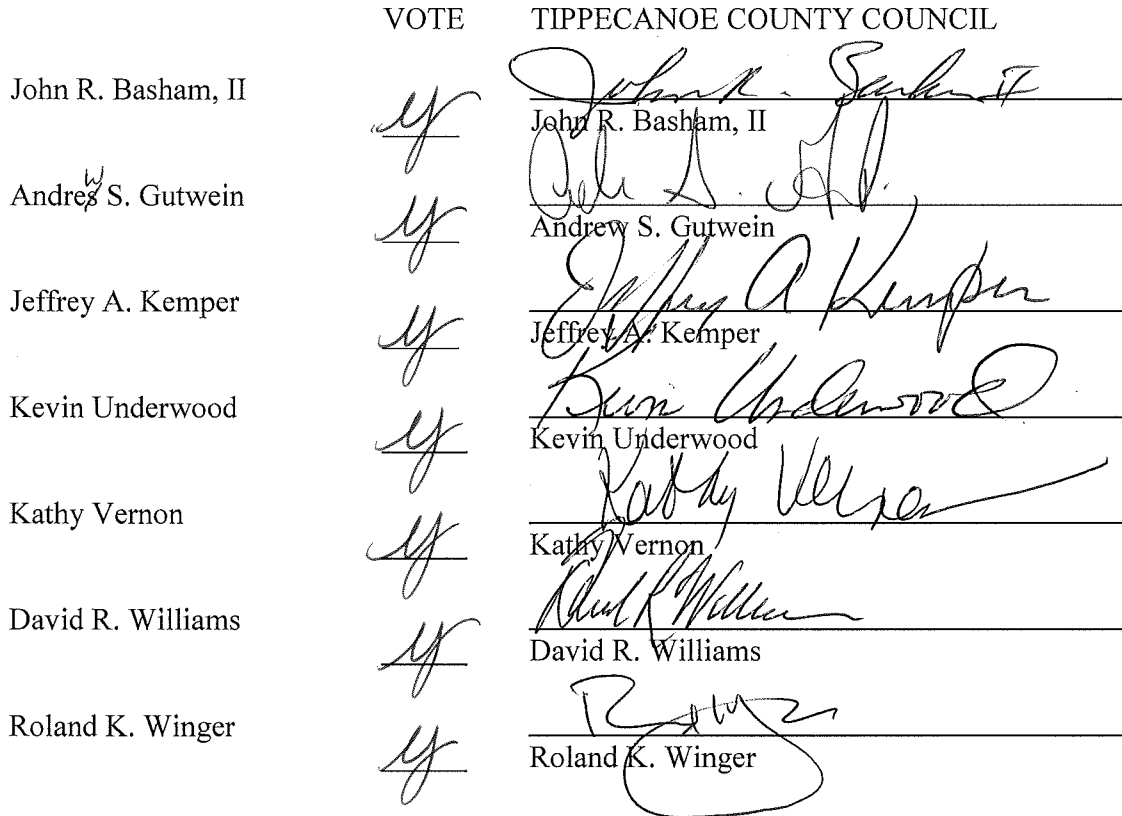 VOTE TIPPECANOE COUNTY COUNCIL
John R. Basham, II y John R. Basham II
John R. Basham, II
Andrew S. Gutwein y
Andrew S. Gutwein
Jeffrey A. Kemper y Jeffrey A Kemper
Jeffrey A. Kemper
Kevin Underwood y Kevin Underwood
Kevin Underwood
Kathy Vernon y Kathy Vernon
Kathy Vernon
David R. Williams y David R Williams
David R. Williams
Roland K. Winger y
Roland K. Winger